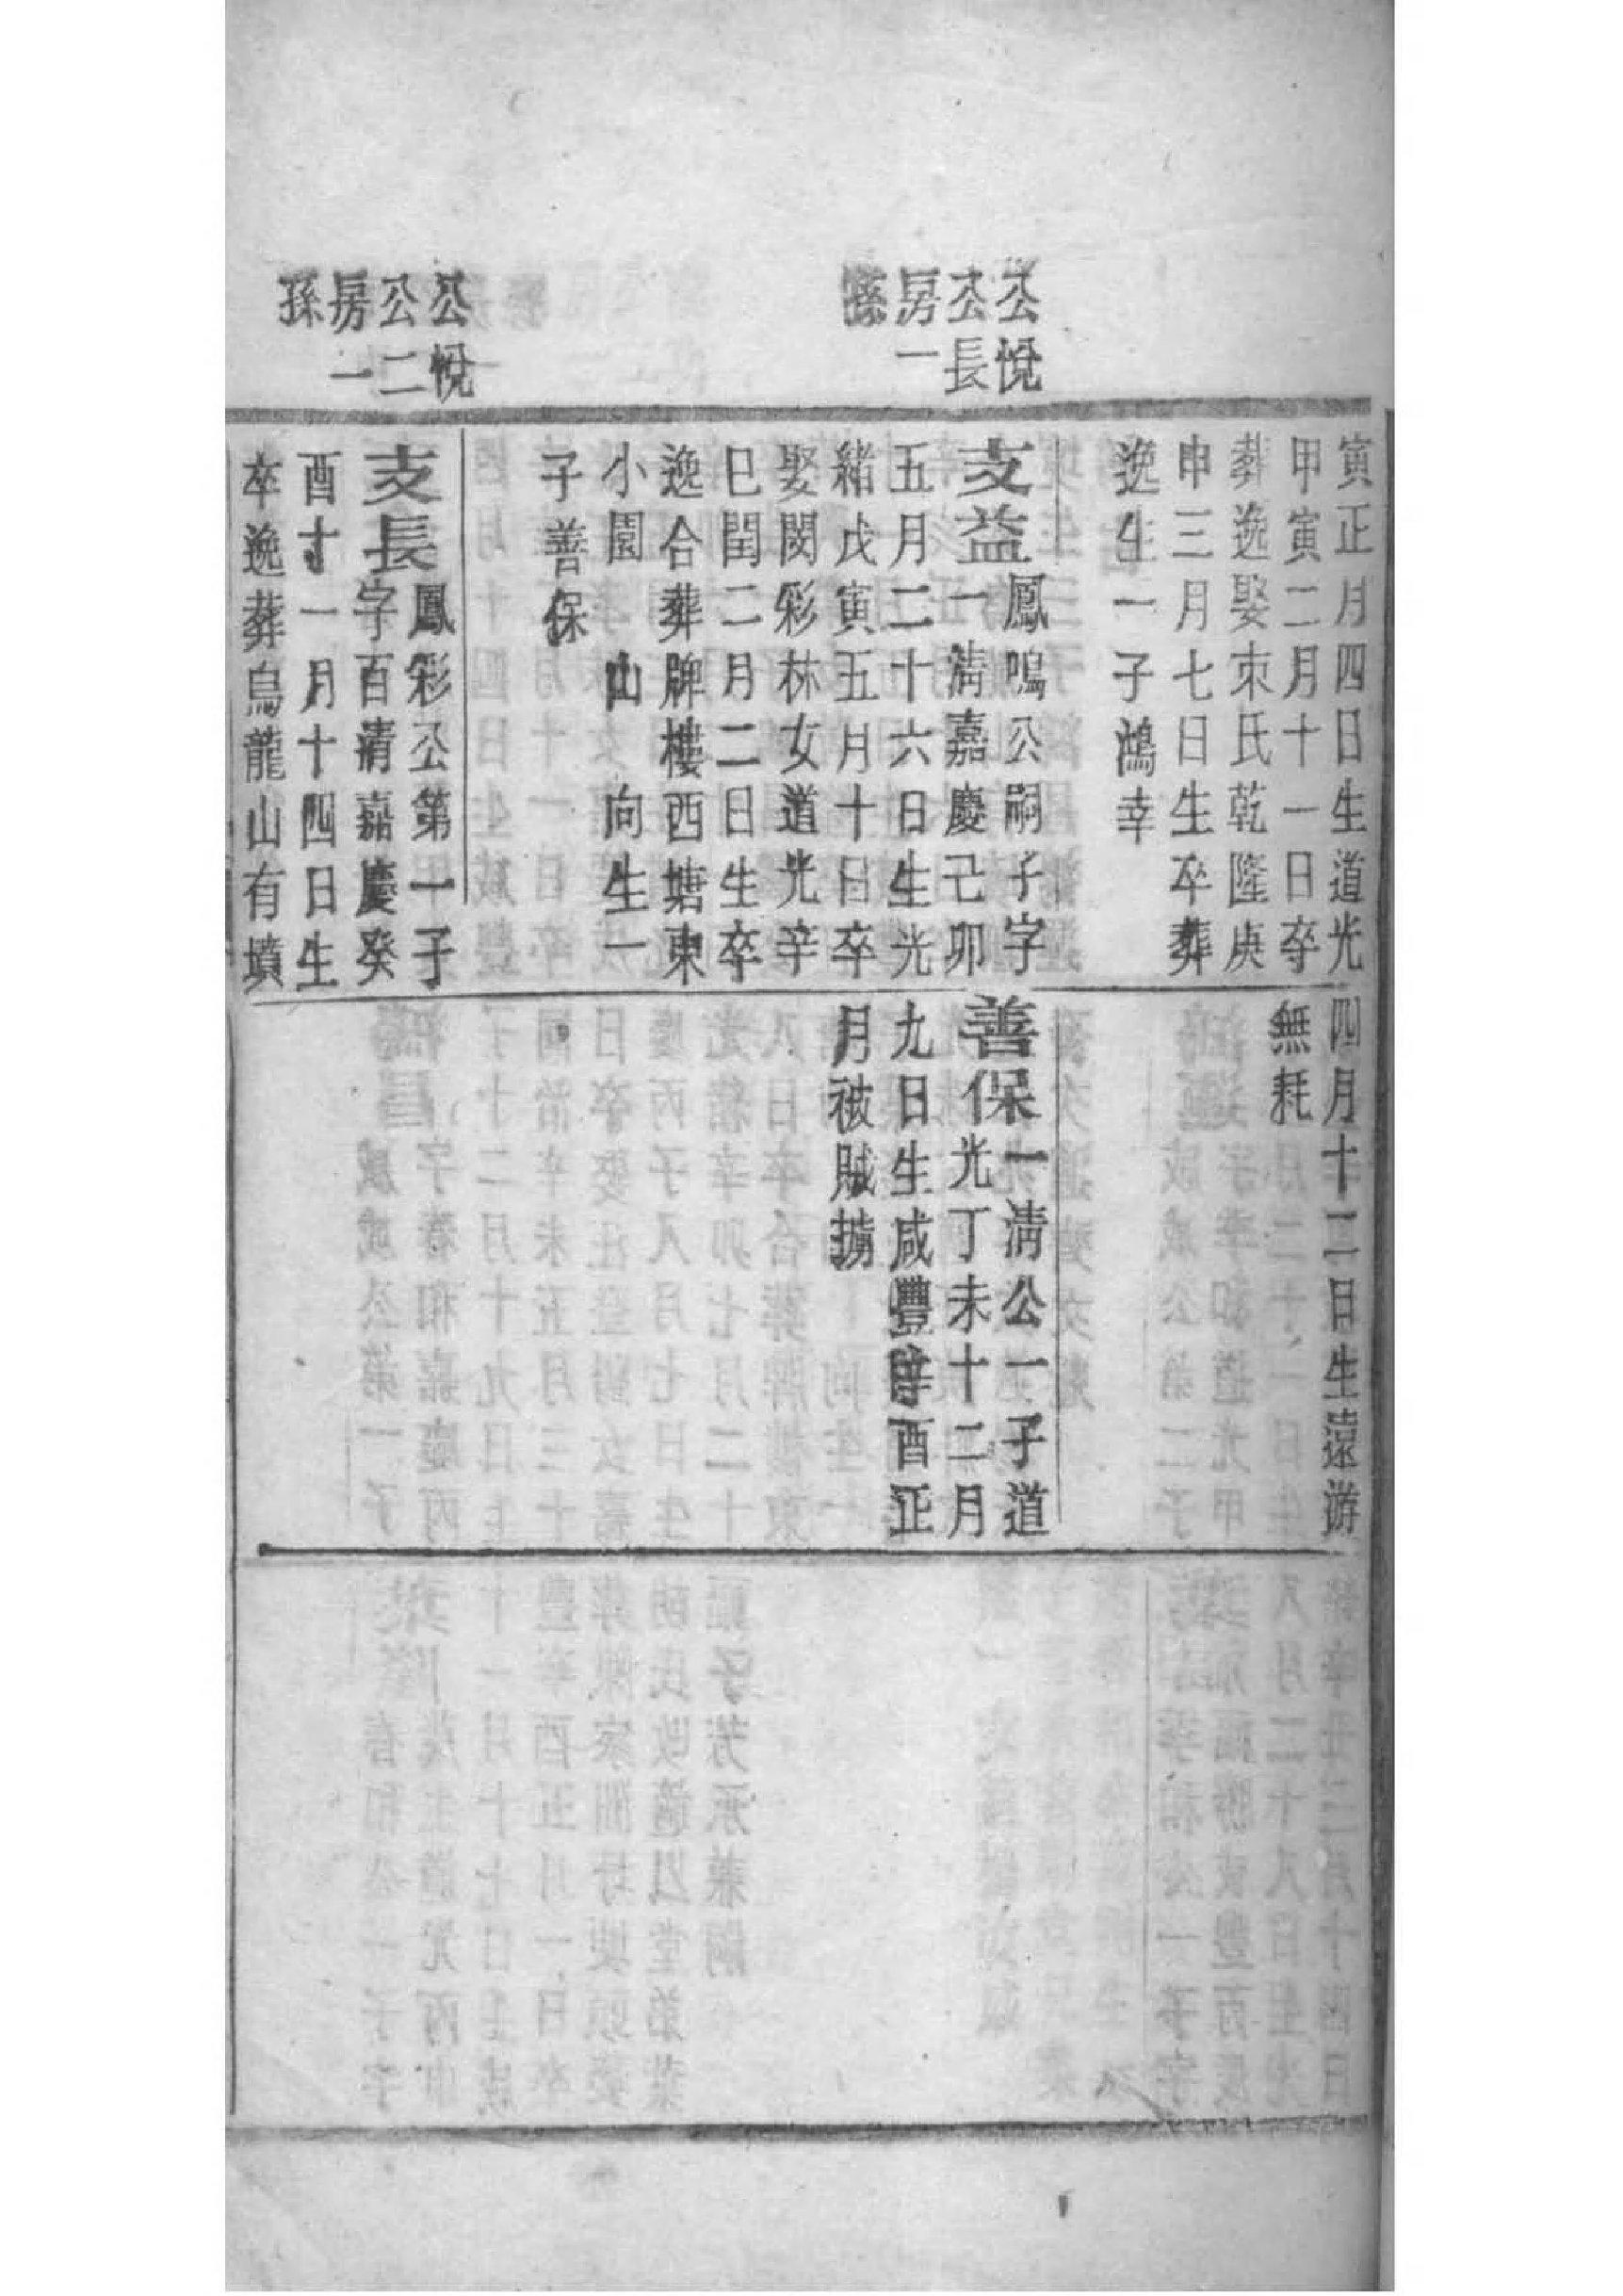 公悅
公長
房一
孫
公悅
公二
房一
孫
寅正月四日生道光
甲寅二月十一日卒
葬逸娶束氏乾隆庚
申三月七日生卒葬
逸生一子鴻幸
支益鳳鳴公嗣子字
一清嘉慶己卯
五月二十六日生光
緒戊寅五月十日卒
娶閔彩林女道光辛
巳閏二月二日生卒
逸合葬牌樓西塘東
小園 山 向生一
子善保
支長鳳彩公第一子
字百清嘉慶癸
酉十一月十四日生
卒逸葬烏龍山有墳
四月十二日生遠游
無耗
善保一清公一子道
光丁未十二月
九日生咸豐辛酉正
月被賊擄